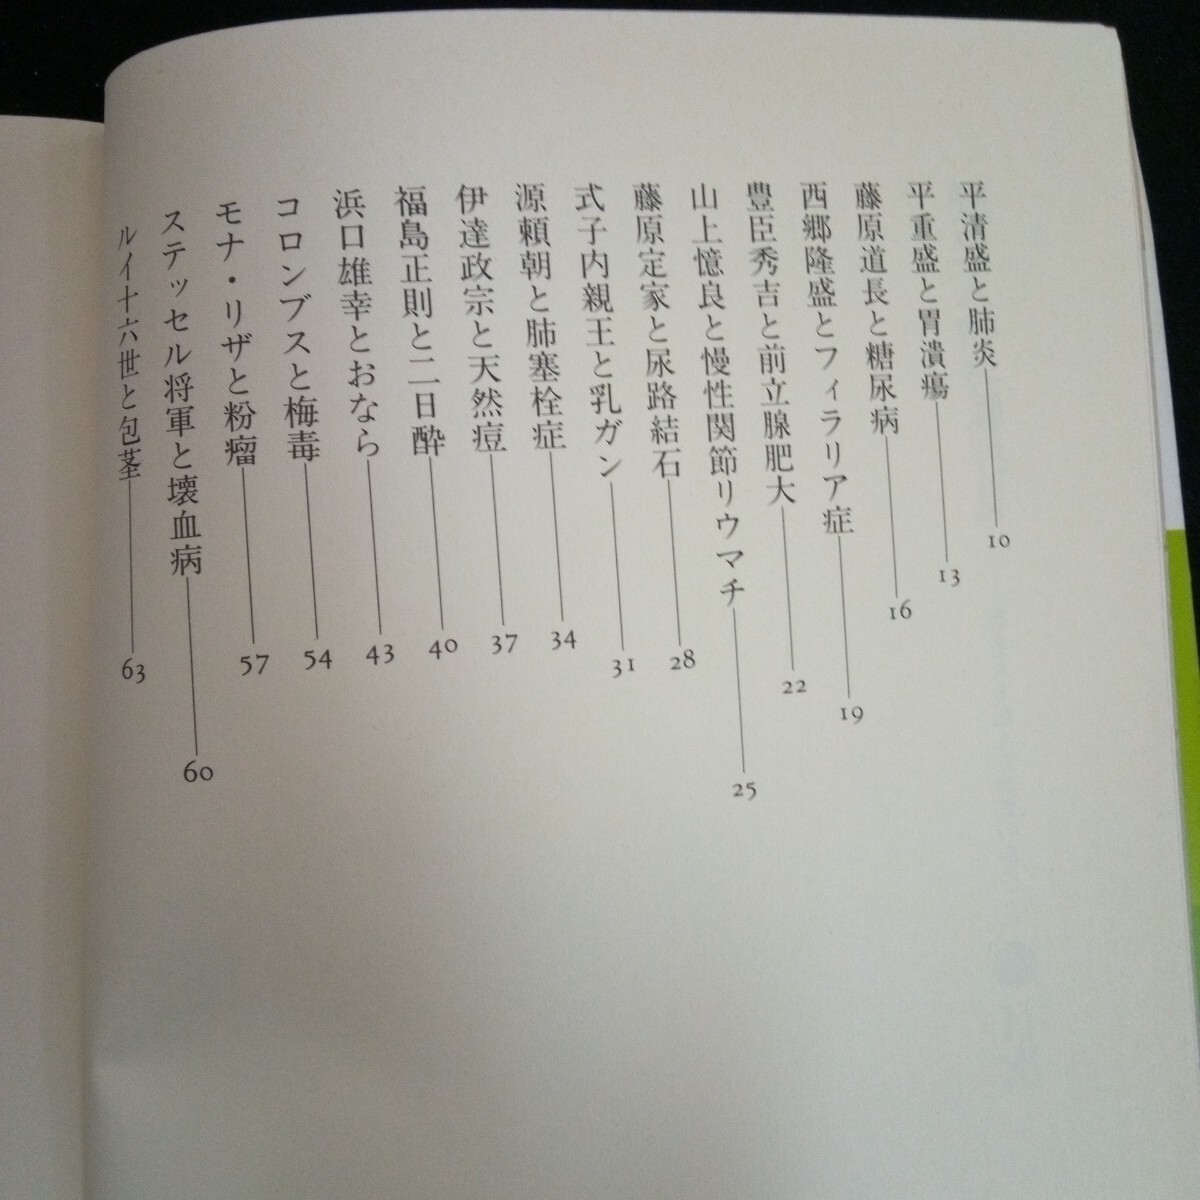 平清盛と肺炎 10
平重盛と胃潰瘍 13
藤原道長と糖尿病 16
西郷隆盛とフィラリア症 19
豊臣秀吉と前立腺肥大 22
山上憶良と慢性関節リウマチ 25
藤原定家と尿路結石 28
式子内親王と乳ガン 31
源頼朝と肺塞栓症 34
伊達政宗と天然痘 37
福島正則と二日酔 40
浜口雄幸とおなら 43
コロンブスと梅毒 54
モナ・リザと粉瘤 57
ステッセル将軍と壊血病 60
ルイ十六世と包茎 63